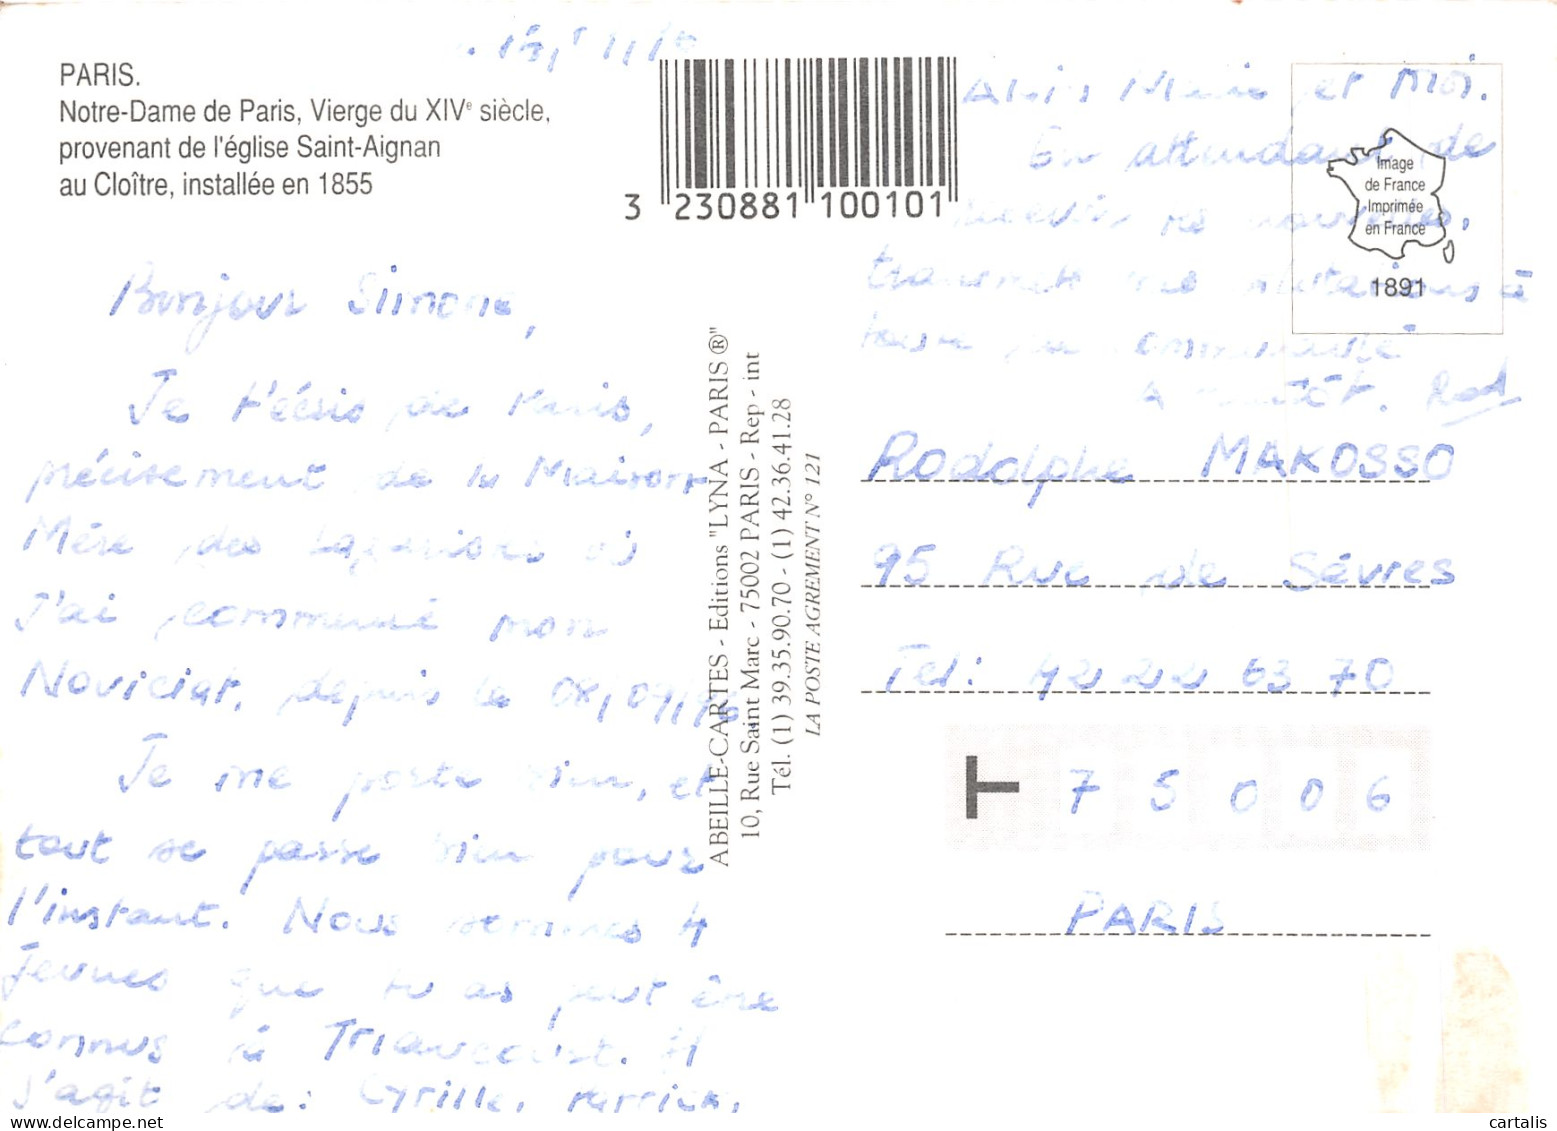 PARIS.
Notre-Dame de Paris, Vierge du XIVe siècle,
provenant de l'église Saint-Aignan
au Cloître, installée en 1855
3 230881 100101
Image
de France
Imprimée
en France
1891
Bonjour Simone,
Je t'écris de Paris,
précisement de la Maison
Mère des Lazaristes où
J'ai commencé mon
Noviciat, depuis le 08/09/96.
Je me porte bien, et
tout se passe bien pour
l'instant. Nous sommes 4
Jeunes que tu as peut être
connus à
S'agit de: Cyrille, Patrick,
et Moi.
En attendant de
recevoir nouvelles,
transmets mes salutations à
toute communauté
A bientôt. Rod
ABEILLE-CARTES - Editions "LYNA - PARIS ®"
10, Rue Saint Marc - 75002 PARIS - Rep - int
Tél. (1) 39.35.90.70 - (1) 42.36.41.28
LA POSTE AGREMENT N° 121
Rodolphe MAKOSSO
95 Rue de Sévres
Tel: 42 22 63 70
T 75006
PARIS
cartalis